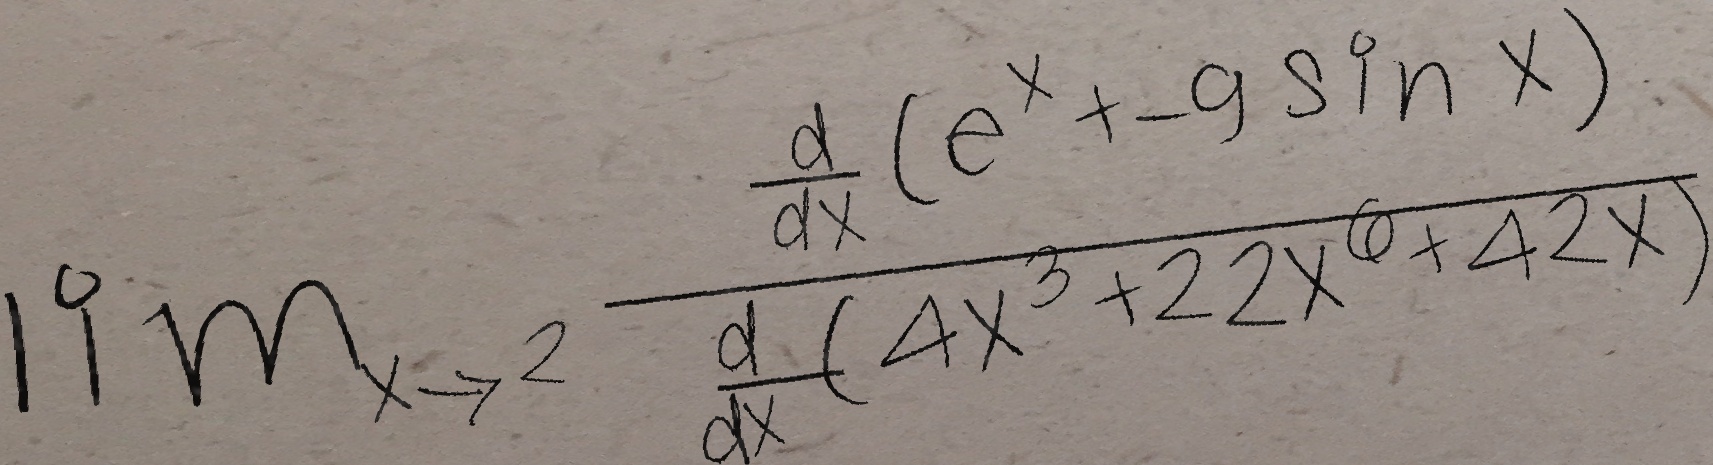 \lim_{x \to 2} \frac{\frac{d}{dx}(e^x + -9 \sin x)}{\frac{d}{dx}(4x^3 + 22x^6 + 42x)}